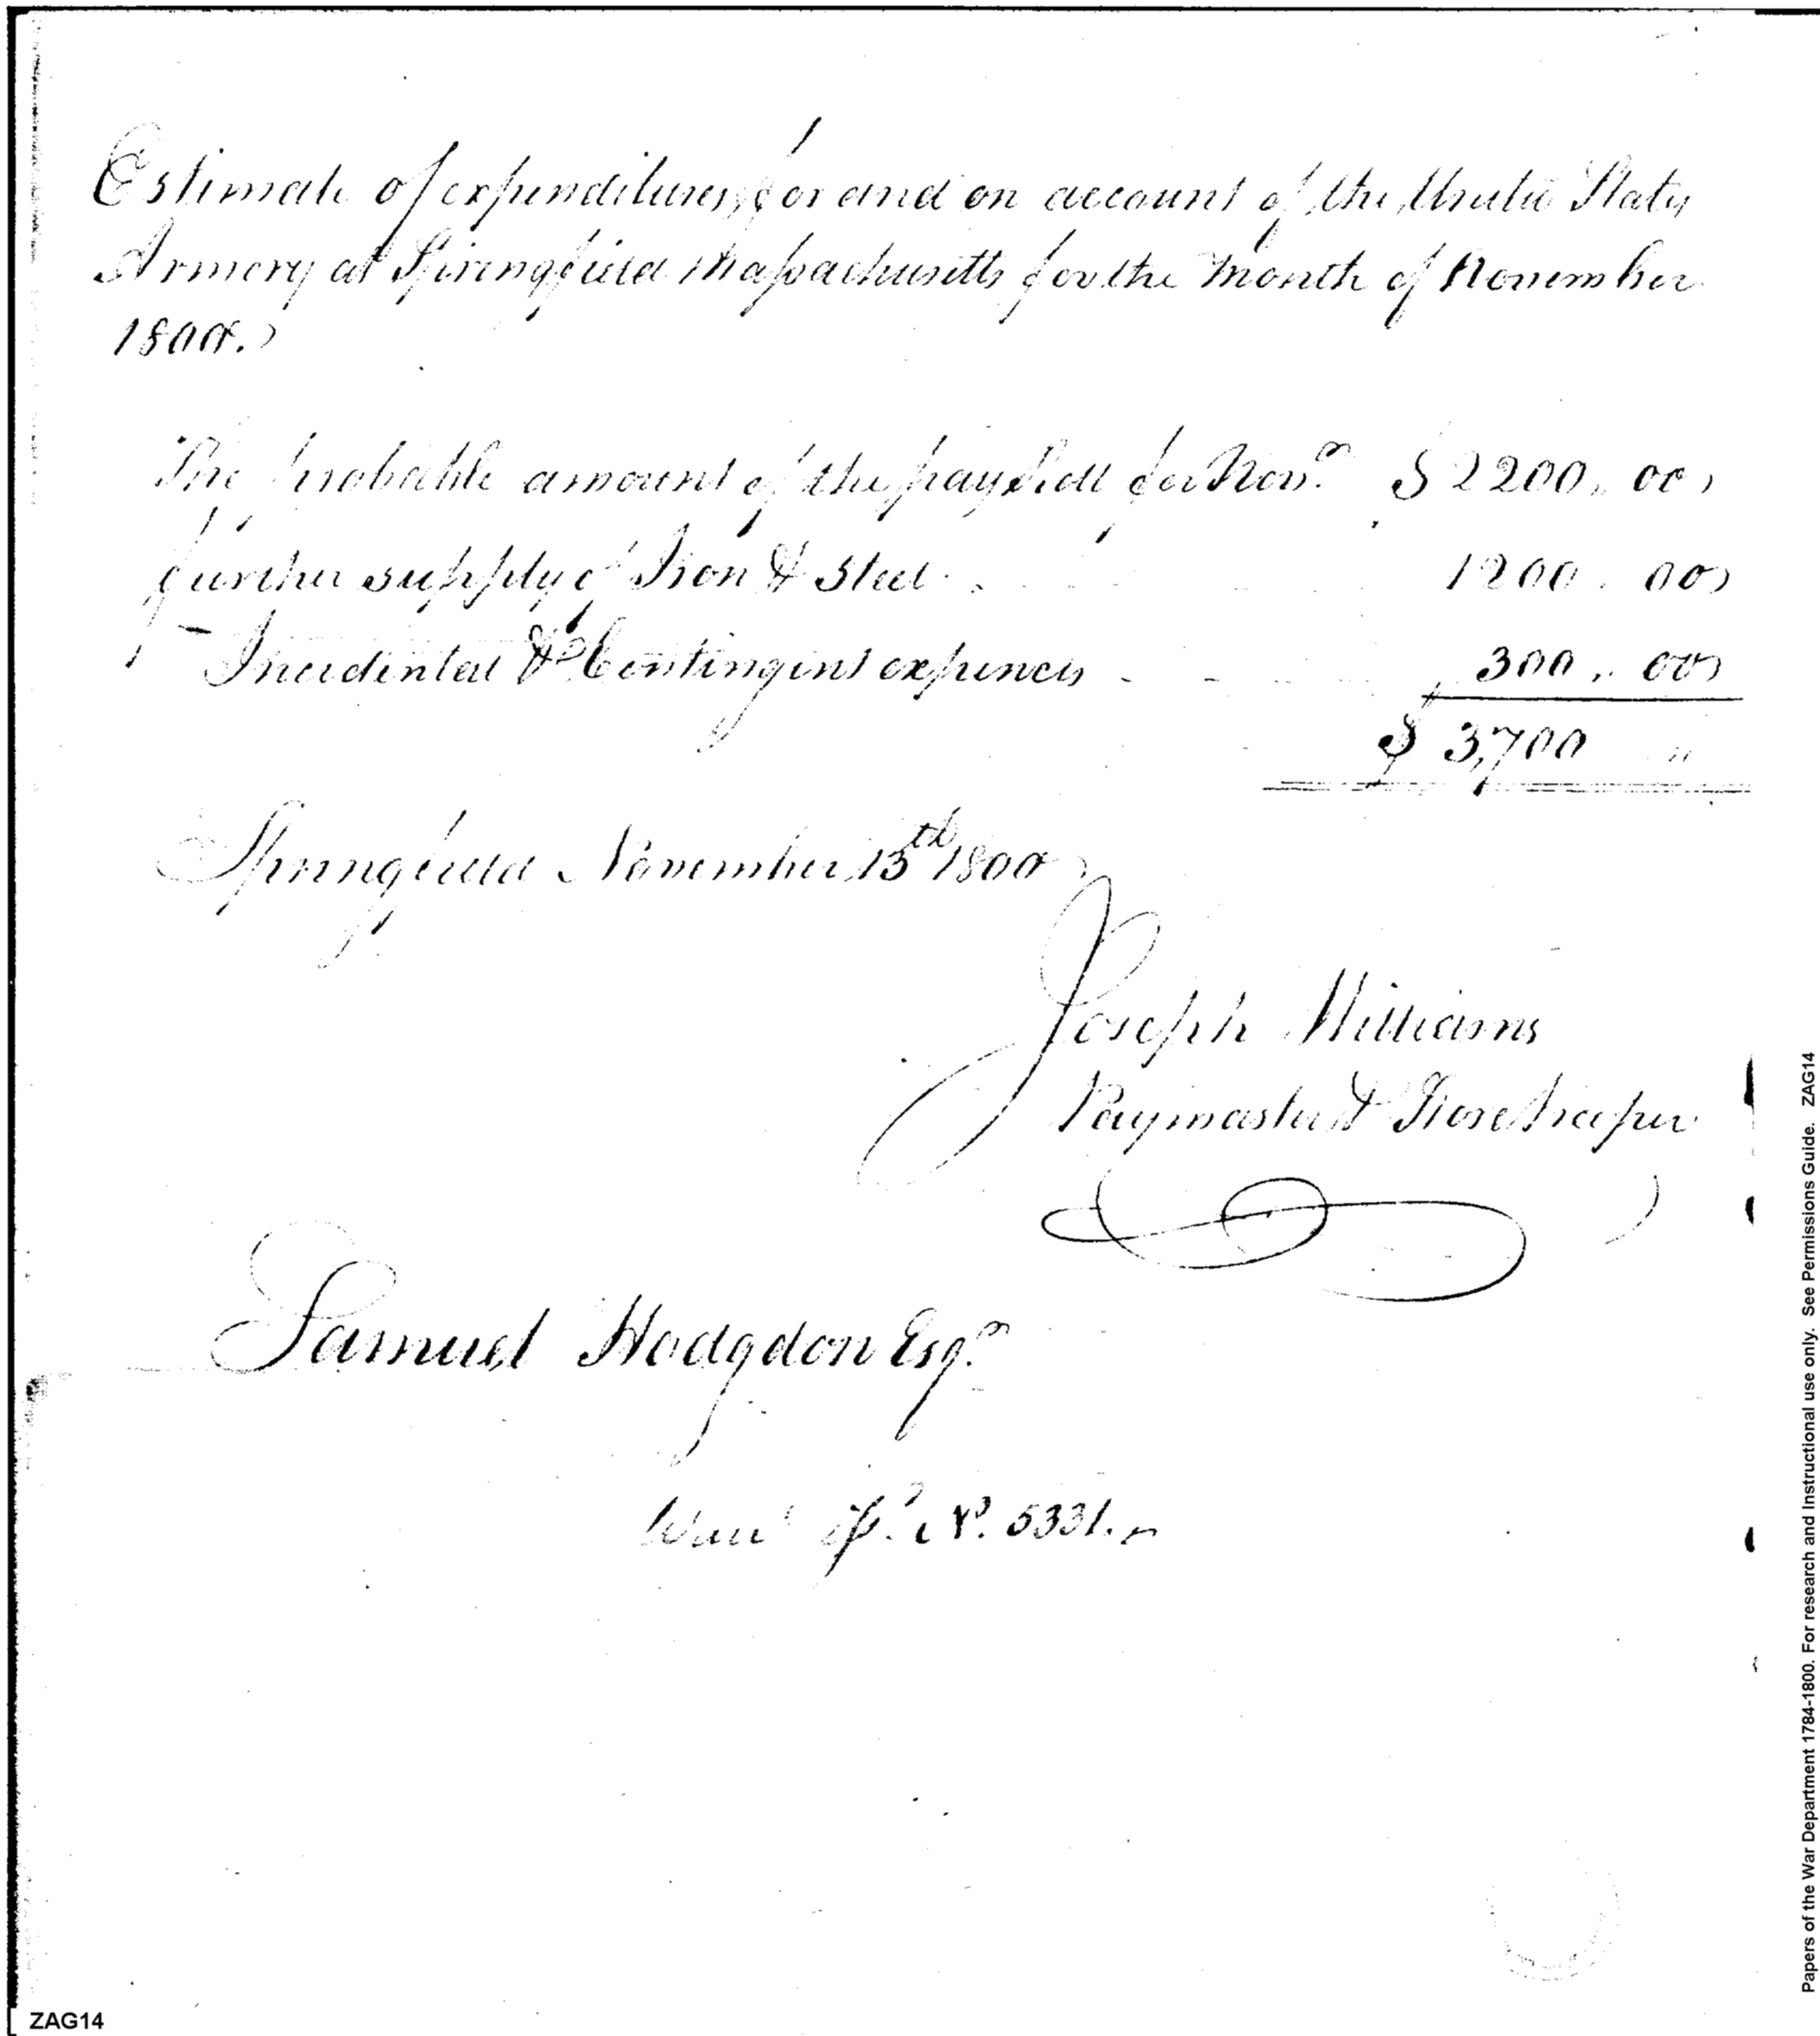 Estimate of expenditures, for and on account of the United States
Armory at Springfield Massachusetts for the Month of November
1800.
The probable amount of the pay Roll for Novr. $ 2200,, 00
further supply of Iron & Steel 1200. 00
Incidental & Contingent expences 300,, 00
$ 3,700 "
Springfield November 13th 1800
Joseph Williams
Paymaster & Storekeeper
Samuel Hodgdon Esqr.
No. 5331.
ZAG14
Papers of the War Department 1784-1800. For research and Instructional use only. See Permissions Guide. ZAG14